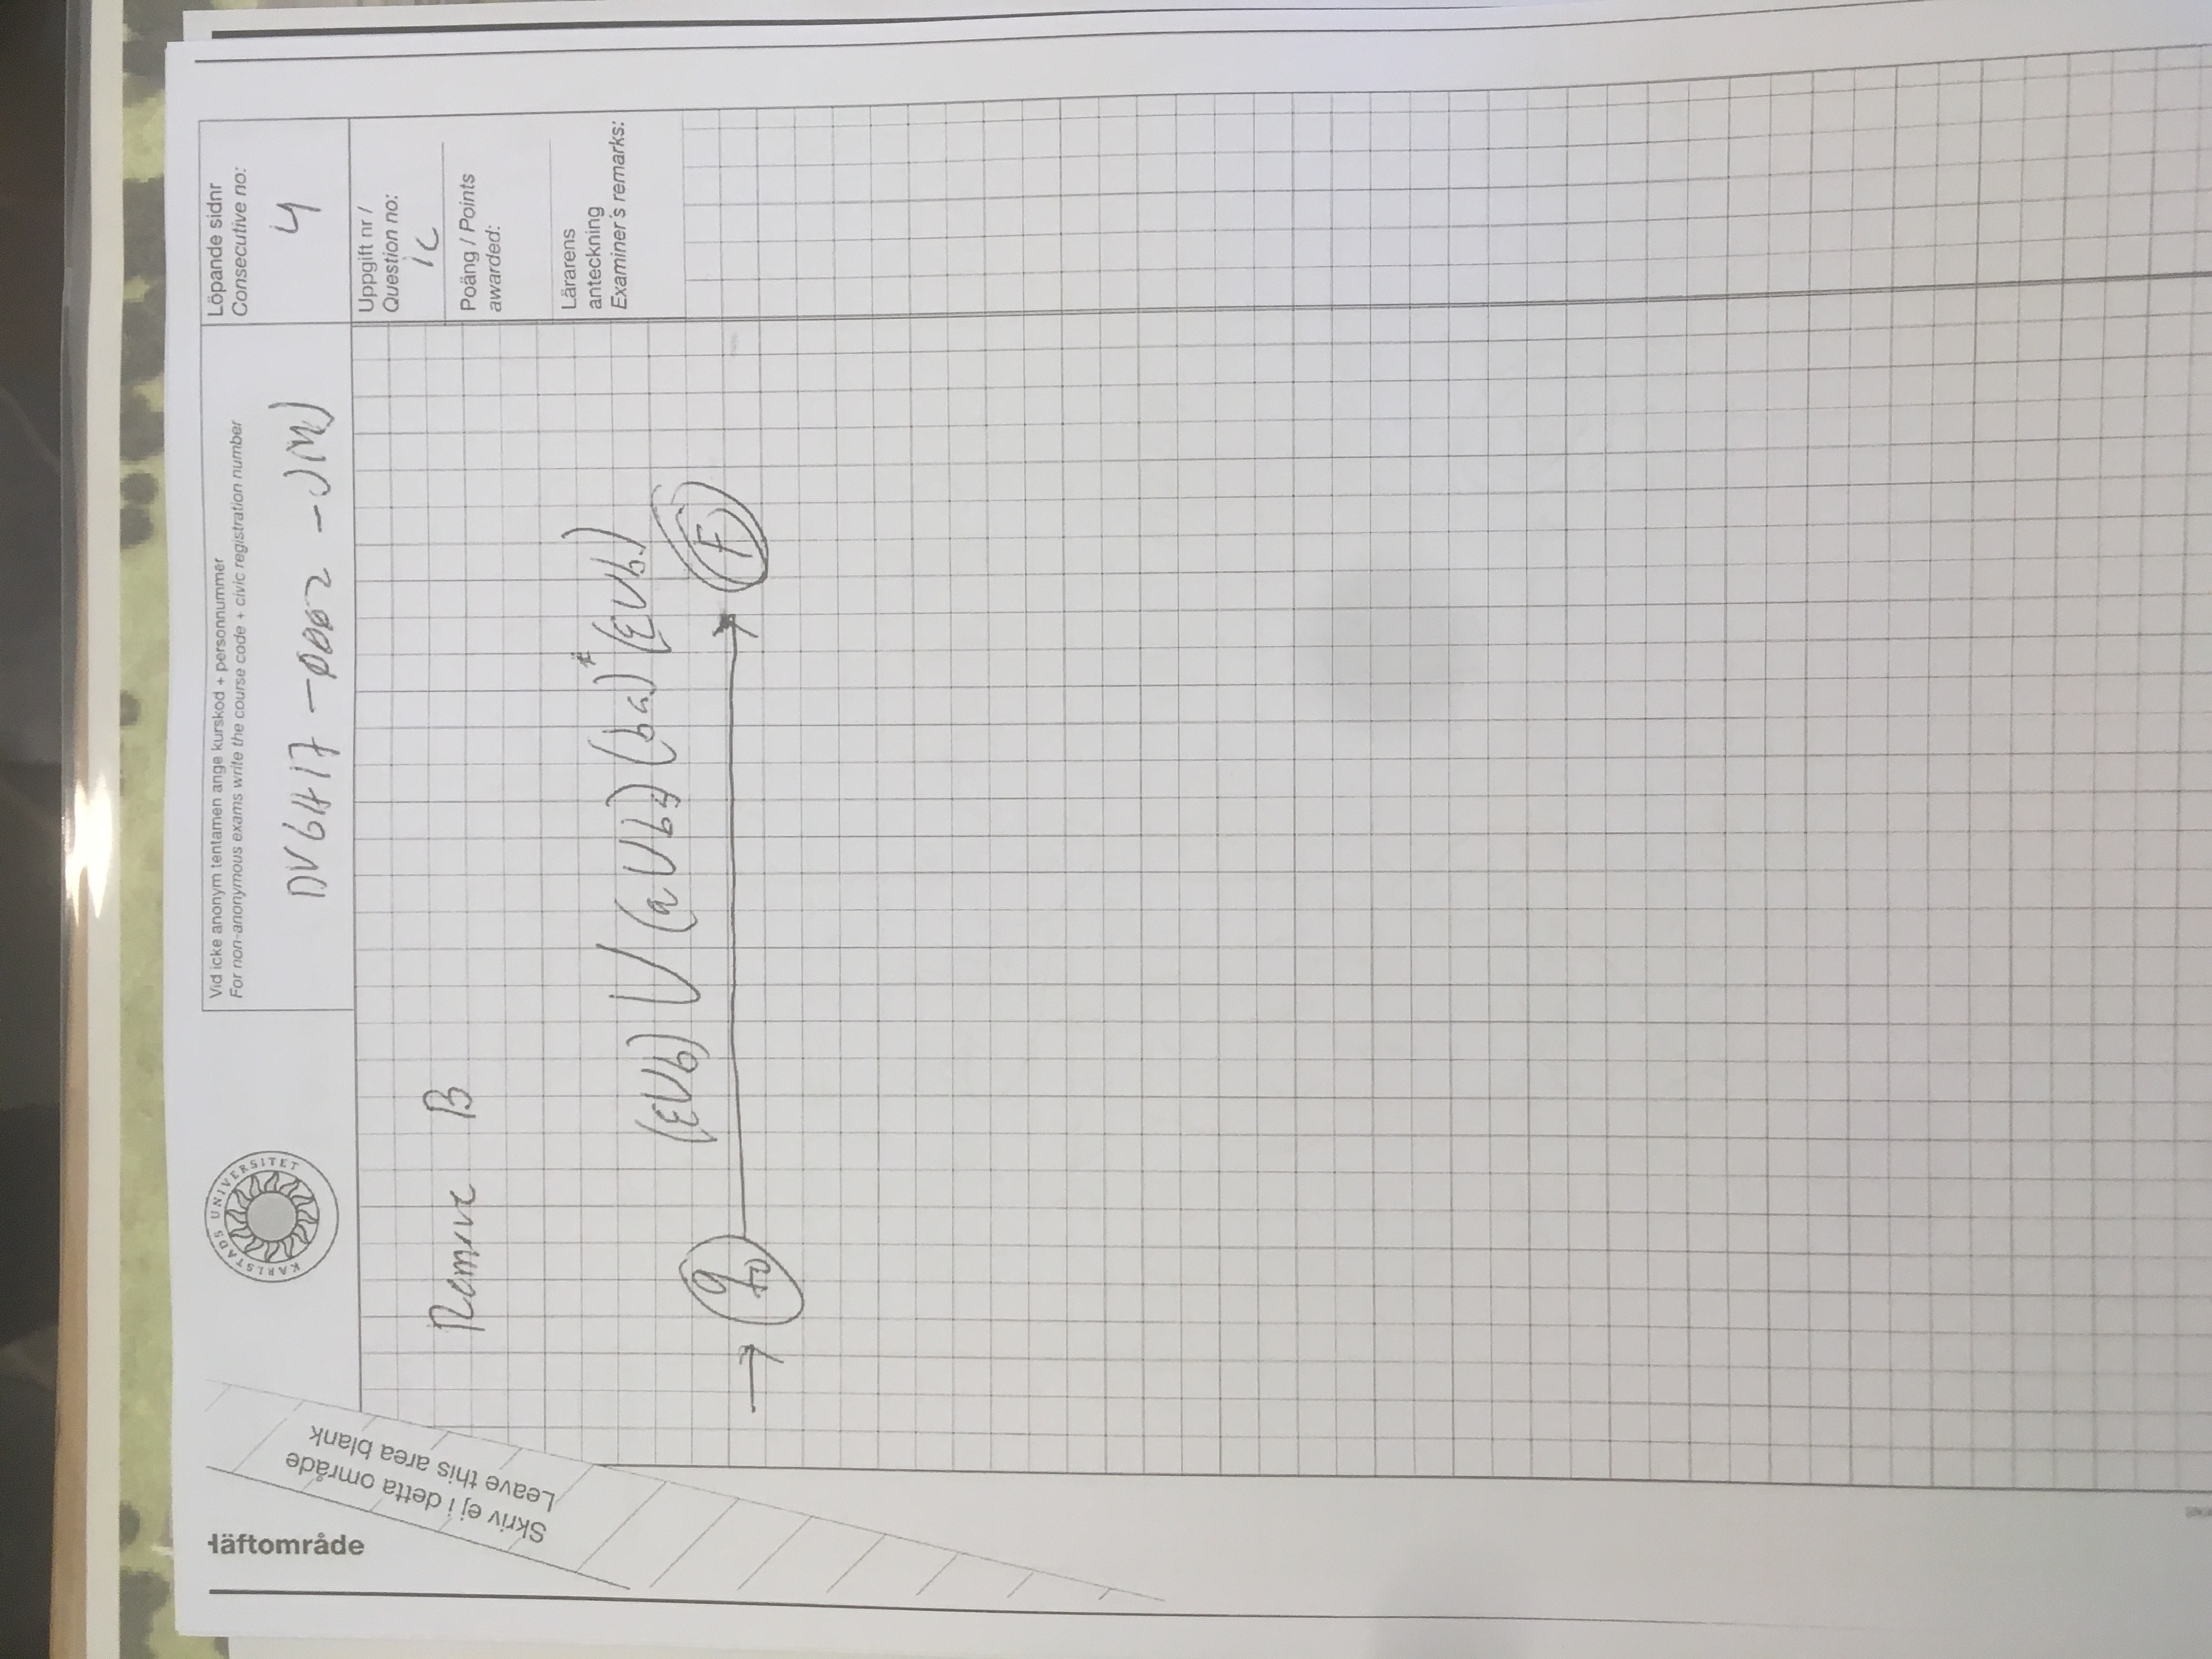 Häftområde
Skriv ej i detta område
Leave this area blank
KARLSTADS UNIVERSITET
Vid icke anonym tentamen ange kurskod + personnummer
For non-anonymous exams write the course code + civic registration number
Löpande sidnr
Consecutive no:
4
Uppgift nr /
Question no:
1c
Poäng / Points
awarded:
Lärarens
anteckning
Examiner's remarks:
Remove B
(εUb) U (aUba) (ba)* (εUb)
q0
F